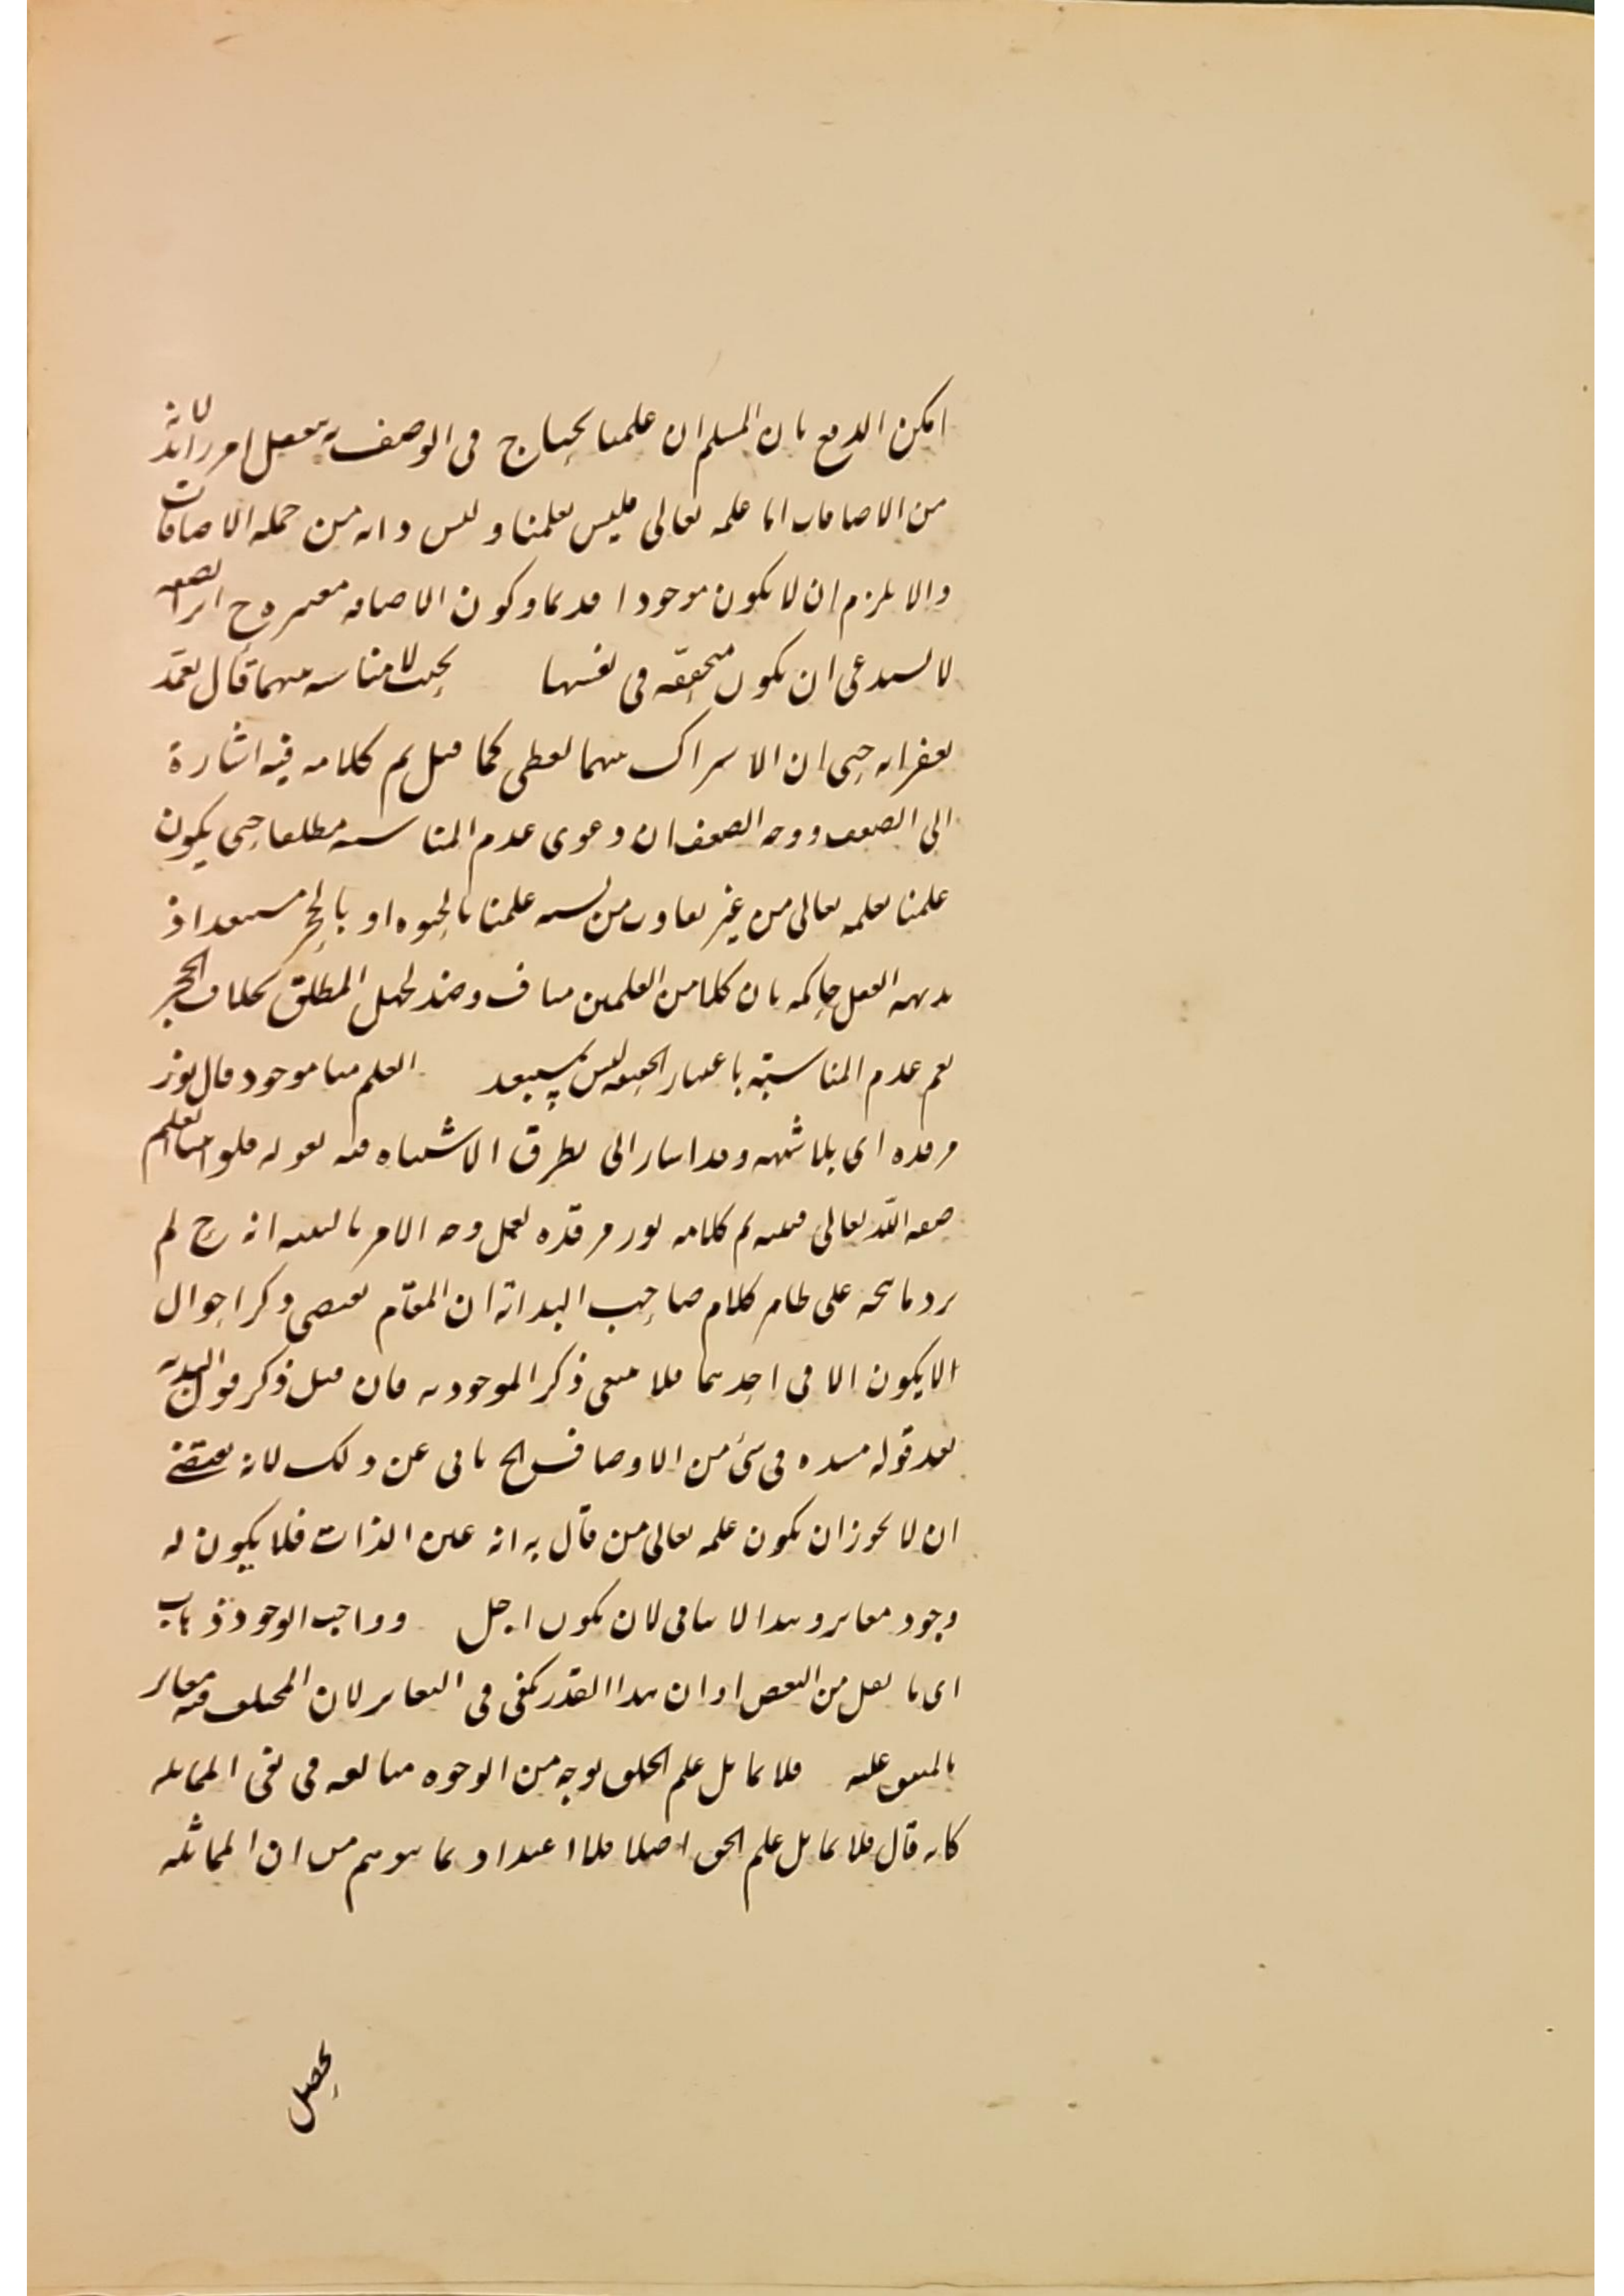 امكن الدفع بان المسلم ان علمنا يحتاج فى الوصف به تعقل امر زائد لانه
من الاضافات اما علمه تعالى فليس كعلمنا وليس ذاته من جملة الاضافات
والا يلزم ان لا يكون موجودا قديما وكون الاضافة معتبرة ح
لا يستدعى ان يكون متحققة فى نفسها بحيث لا مناسبة بينهما قال تغمد
بغفرانه حتى ان الاشتراك بينهما لفظى كما قيل ثم كلامه فيه اشارة
الى الضعف ووجه الضعف ان دعوى عدم المناسبة مطلقا حتى يكون
علمنا بعلمه تعالى من غير تفاوت من نسبة علمنا بالحيوة او بالحجر مستبعد اذ
بديهة العقل حاكمة بان كلا من العلمين مناف وضد لجهل المطلق بخلاف الحجر
نعم عدم المناسبة باعتبار الحقيقة ليس بمستبعد العلم منا موجود قال نور
مرقده اى بلا شبهة وقد اشار الى تطرق الاشتباه فيه بقوله فلو اثبتنا العلم
صفة الله تعالى فيه ثم كلامه نور مرقده لعل وجه الامر بالتنبيه انه ح لم
يرد ما يتجه على ظاهر كلام صاحب البداية ان المقام يقتضى ذكر احوال
لا يكون الا فى احدهما فلا معنى ذكر الموجودية فان قيل ذكر قول البداية
بعد قوله مسده فى شئ من الاوصاف الخ يابى عن ذلك لانه يقتضى
ان لا يجوز ان يكون علمه تعالى من قال به انه عين الذات فلا يكون له
وجود مغاير وهذا لا ينافى لان يكون اجل وواجب الوجود ذهاب
اى ما نقل من البعض او ان هذا القدر يكفى فى التغاير لان المختلف فيه مغاير
بالمتفق عليه فلا يماثل علم الخلق بوجه من الوجوه مبالغة فى نفى المماثلة
كانه قال فلا يماثل علم الحق اصلا فلا اعتداد بما يتوهم من ان المماثلة
يحصل